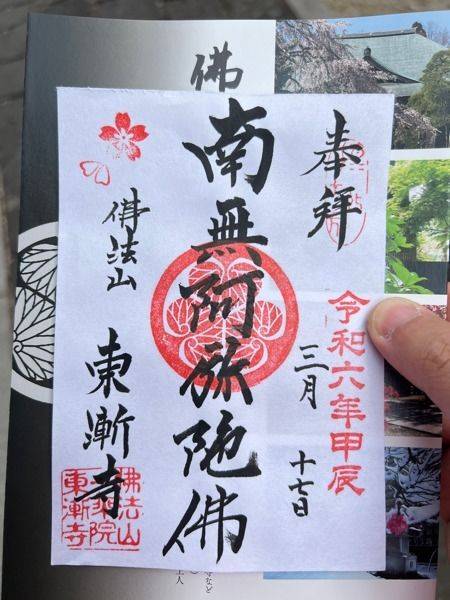 奉拝
令和六年甲辰
三月
十七日
南無阿弥陀佛
佛法山
東漸寺
佛法山
東漸寺
佛
上人